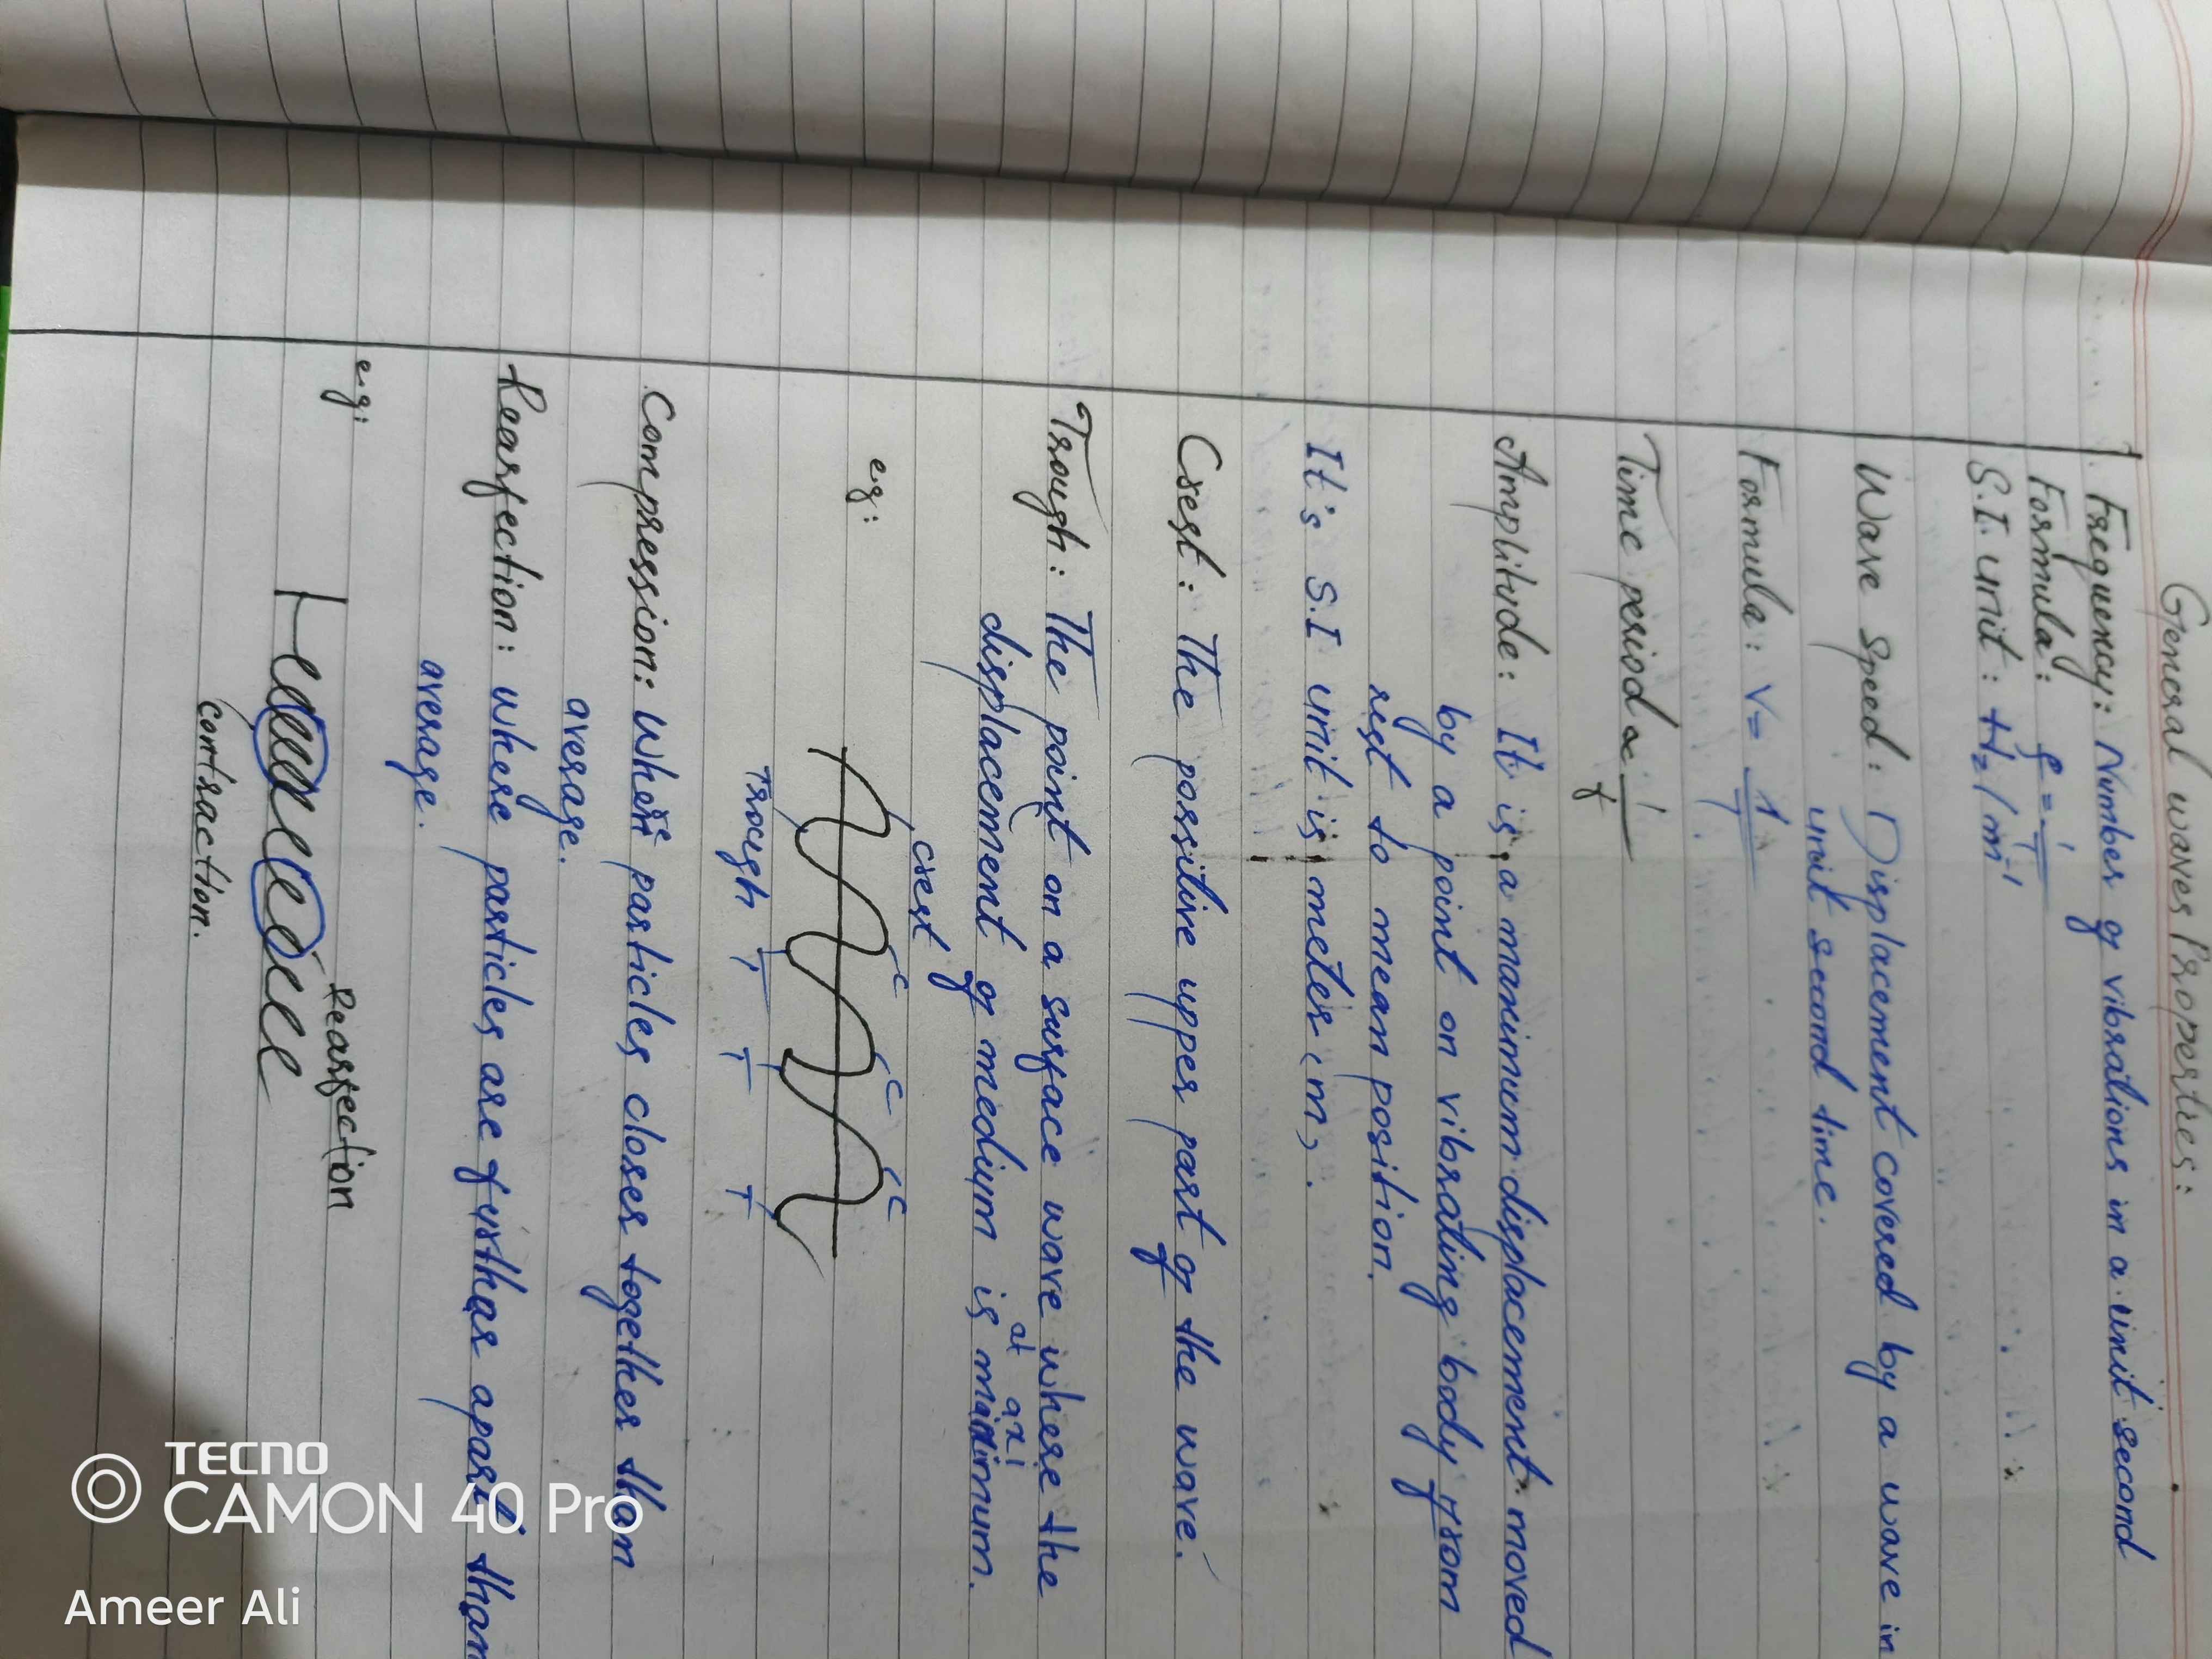 General waves Properties:
Frequency: Number of vibrations in a unit second
Formula: f = 1/T
S.I. unit: Hz / m⁻¹
Wave Speed: Displacement covered by a wave in
unit second time.
Formula: V= 1/T
Time period ∝ 1/f
Amplitude: It is a maximum displacement moved
by a point on vibrating body from
rest to mean position.
It's S.I unit is meter (m).
Crest: The possitive upper part of the wave.
Trough: The point on a surface wave where the
at axi
displacement of medium is maximum.
crest C C C
eg:
Trough T T T
Compression: Where particles closer together than
average.
Rearfection: where particles are further apart than
average.
e.g:
Rearfection
contraction.
TECNO
CAMON 40 Pro
Ameer Ali